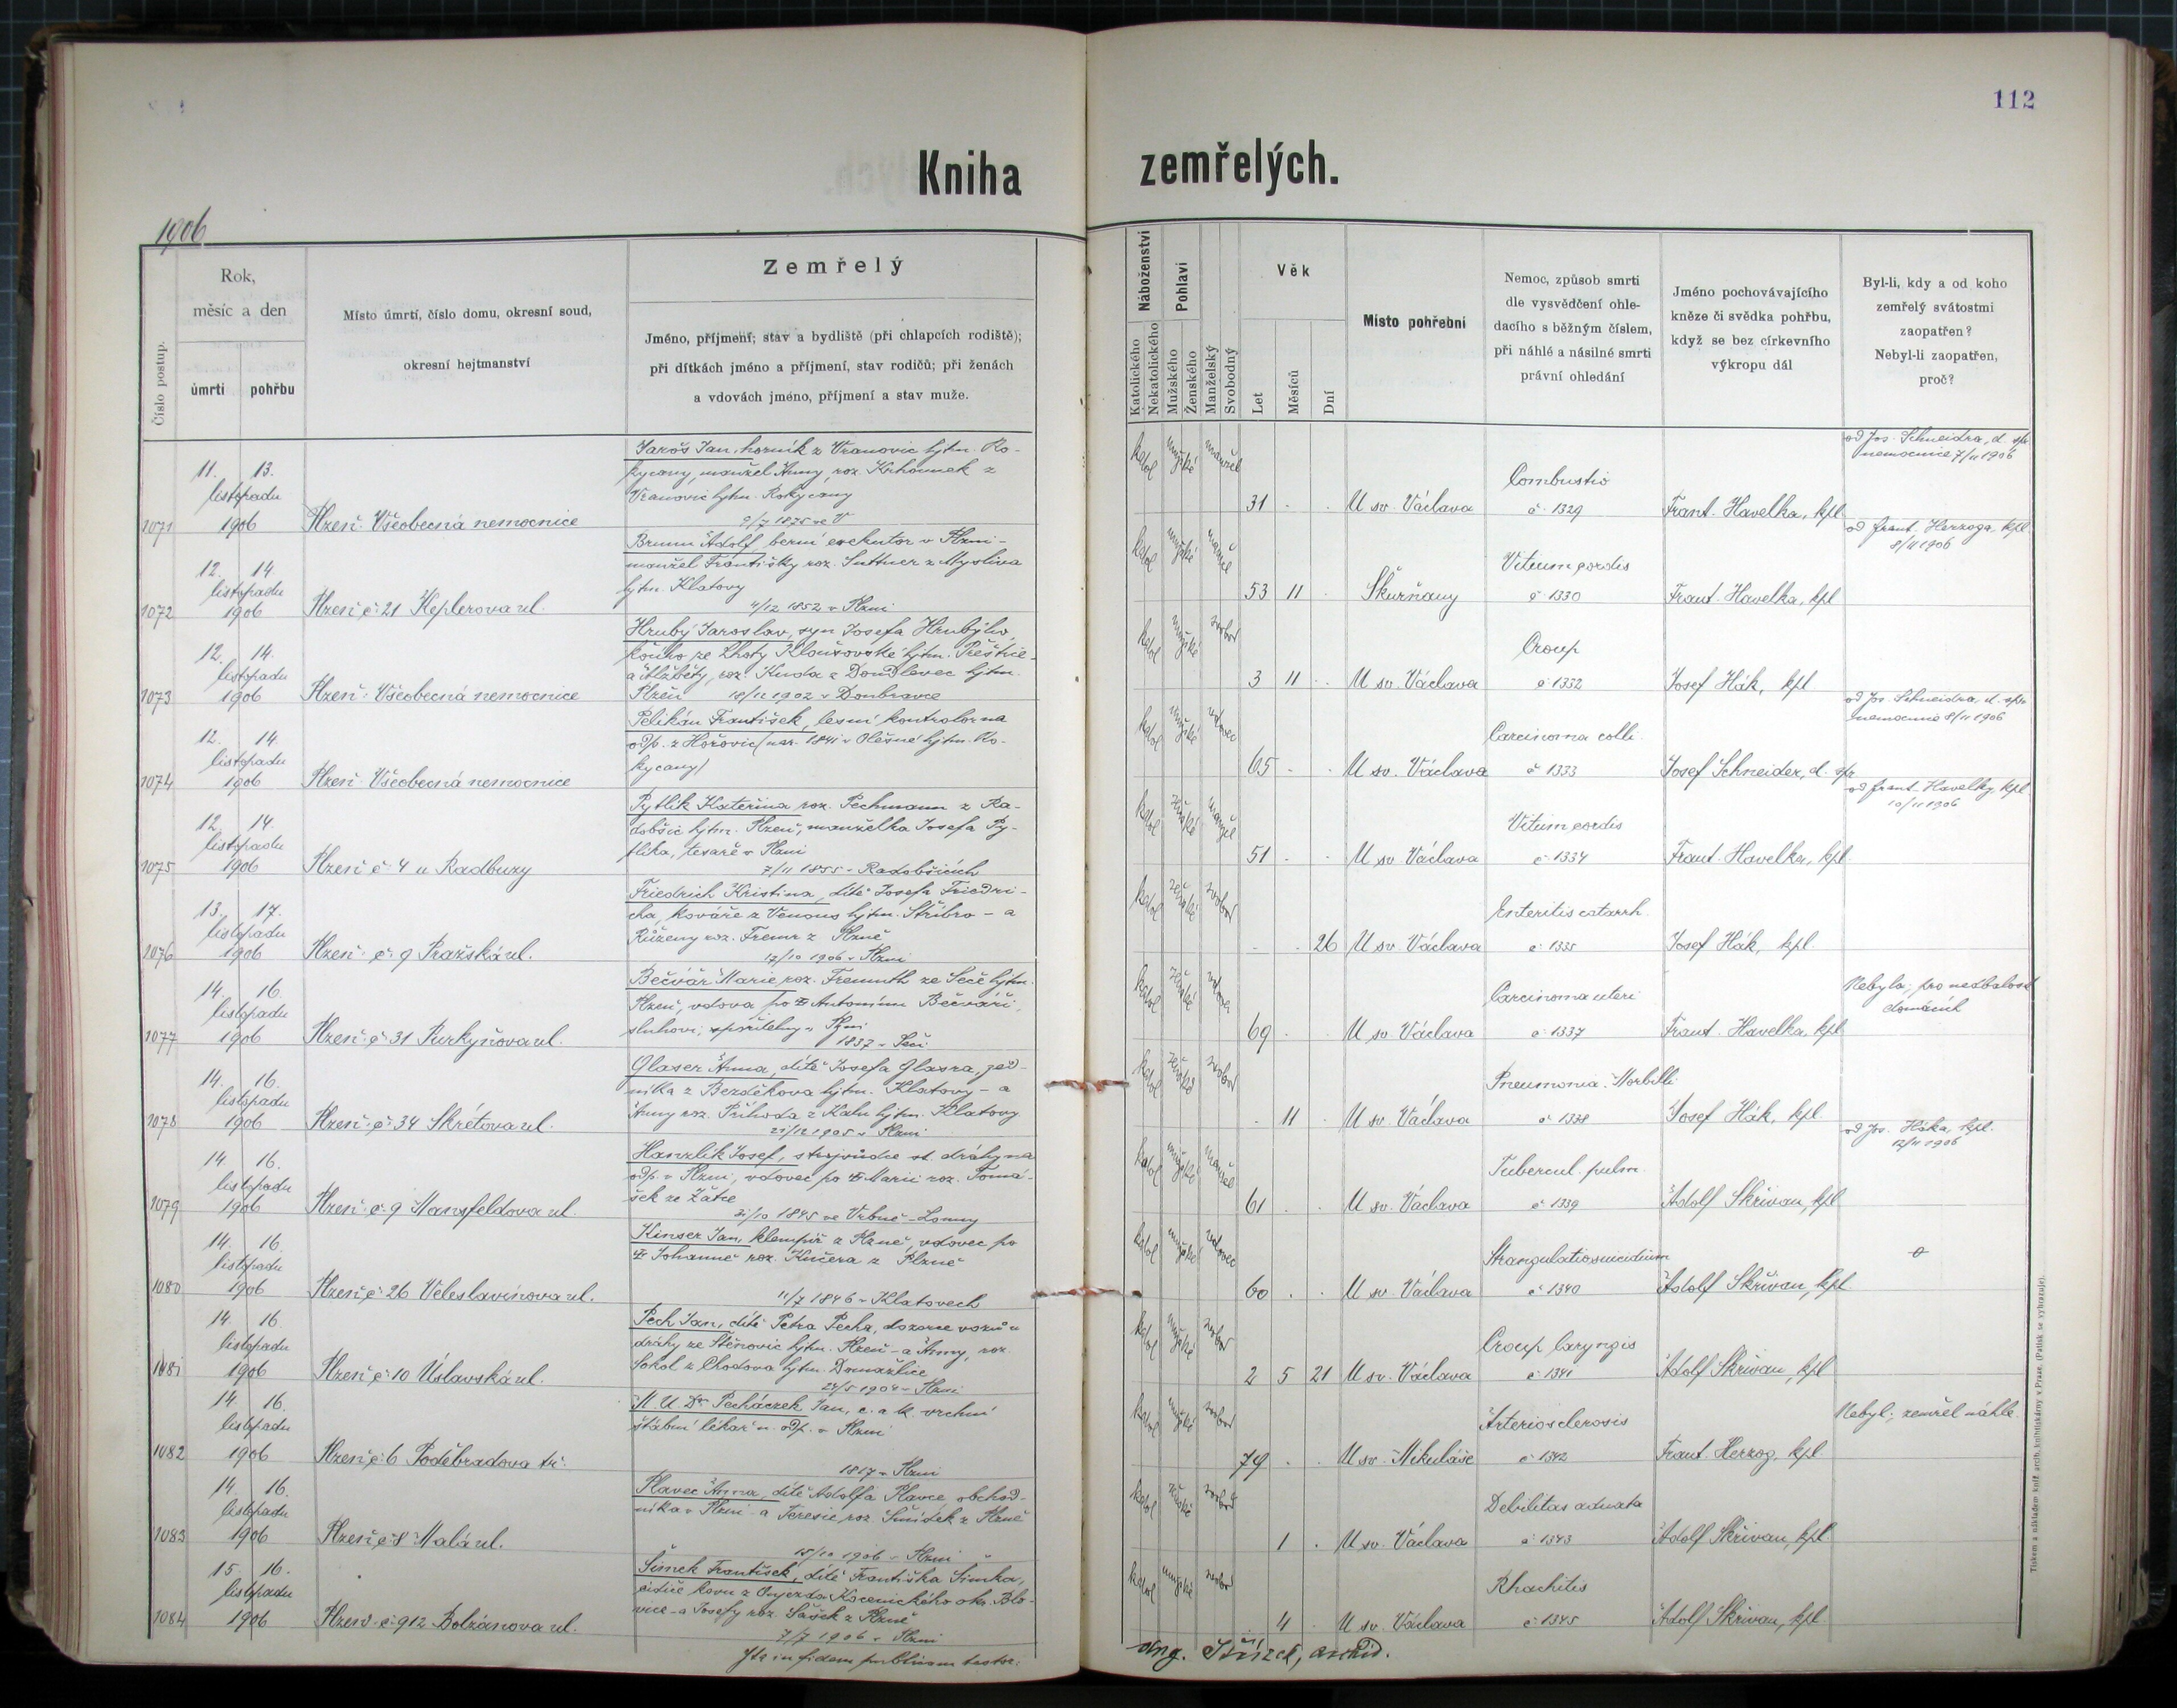 112
Kniha zemřelých.
1906
Číslo postup.
Rok,
měsíc a den
úmrtí
pohřbu
Místo úmrtí, číslo domu, okresní soud,
okresní hejtmanství
Zemřelý
Jméno, příjmení; stav a bydliště (při chlapcích rodiště);
při dítkách jméno a příjmení, stav rodičů; při ženách
a vdovách jméno, příjmení a stav muže.
Náboženství
Katolického
Nekatolického
Pohlaví
Mužského
Ženského
Manželský
Svobodný
Věk
Let
Měsíců
Dní
Místo pohřební
Nemoc, způsob smrti
dle vysvědčení ohle-
dacího s běžným číslem,
při náhlé a násilné smrti
právní ohledání
Jméno pochovávajícího
kněze či svědka pohřbu,
když se bez církevního
výkropu dál
Byl-li, kdy a od koho
zemřelý svátostmi
zaopatřen?
Nebyl-li zaopatřen,
proč?
1071
11. 13.
listopadu
1906
Plzeň. Všeobecná nemocnice
Jaroš Jan, horník z Vranovic hjtm. Ro-
kycany, manžel Anny, roz. Krhounek z
Vranovic hjtm. Rokycany
9/7 1875 ve V
katol mužské manžel
31 . .
U sv. Václava
Combustio
č. 1329
Frant. Havelka, kpl
od Jos. Schneidra, d. spr.
nemocnice 7/11 1906
1072
12. 14.
listopadu
1906
Plzeň č. 21 Keplerova ul.
Brumm Adolf, berní exekutor v Plzni -
manžel Františky roz. Suttner z Myslíva
hjtm. Klatovy
4/12 1852 v Plzni
katol mužské manžel
53 11 .
Škurňany
Vitium cordis
č. 1330
Frant. Havelka, kpl
od Frant. Herzoga, kpl.
8/11 1906
1073
12. 14.
listopadu
1906
Plzeň. Všeobecná nemocnice
Hrubý Jaroslav, syn Josefa Hrubýho,
kočího ze Lhoty Kloušovské hjtm. Přeštice -
a Alžběty, roz. Kuda z Doudlevec hjtm.
Plzeň 18/12 1902 v Doubravce
katol mužské svobod
3 11 .
U sv. Václava
Croup
č. 1332
Josef Hák, kpl
1074
12. 14.
listopadu
1906
Plzeň. Všeobecná nemocnice
Pelikán František, lesní kontrolor na
odp. z Hořovic (nar. 1841 v Olešné hjtm. Ro-
kycany)
katol mužské vdovec
65 . .
U sv. Václava
Carcinoma colli.
č. 1333
Josef Schneider, d. spr.
od Jos. Schneidra, d. spr.
nemocnice 8/11 1906
1075
12. 14.
listopadu
1906
Plzeň č. 4 u Radbuzy
Pytlík Kateřina roz. Pechmann z Ra-
dobšic hjtm. Plzeň, manželka Josefa Py-
tlíka, tesaře v Plzni
7/11 1855 v Radobšicích
katol ženské manžel
51 . .
U sv. Václava
Vitium cordis
č. 1334
Frant. Havelka, kpl.
od Frant. Havelky, kpl.
10/11 1906
1076
13. 17.
listopadu
1906
Plzeň č. 9 Pražská ul.
Friedrich Kristina, dítě Josefa Friedri-
cha, kováře z Venous hjtm. Stříbro - a
Růženy roz. Fremr z Plzně
17/10 1906 v Plzni
katol ženské svobod
. . 26
U sv. Václava
Enteritis catarrh.
č. 1335
Josef Hák, kpl
1077
14. 16.
listopadu
1906
Plzeň č. 31 Purkyňova ul.
Bečvář Marie roz. Fremuth ze Seče hjtm.
Plzeň, vdova po † Antonínu Bečváři,
sluhovi, v Plzni
1837 v Seči
katol ženské vdova
69 . .
U sv. Václava
Carcinoma uteri
č. 1337
Frant. Havelka, kpl
Nebyla; pro nedbalost
domácích
1078
14. 16.
listopadu
1906
Plzeň č. 34 Skrétova ul.
Glaser Anna, dítě Josefa Glasra, zed-
níka z Bezděkova hjtm. Klatovy - a
Anny roz. Příhoda z Kalu hjtm. Klatovy
21/12 1905 v Plzni
katol ženské svobod
. 11 .
U sv. Václava
Pneumonia. Morbilli
č. 1338
Josef Hák, kpl
1079
14. 16.
listopadu
1906
Plzeň č. 9 Mansfeldova ul.
Hanzlík Josef, strojvůdce st. dráhy na
odp. v Plzni, vdovec po † Marii roz. Tomá-
šek ze Žatce
21/10 1845 ve Vrbně - Louny
katol mužské manžel
61 . .
U sv. Václava
Tubercul. pulm.
č. 1339
Adolf Skřivan, kpl
od Jos. Háka, kpl.
12/11 1906
1080
14. 16.
listopadu
1906
Plzeň č. 26 Veleslavínova ul.
Kinser Jan, klempíř z Plzně, vdovec po
† Johanně roz. Kučera z Plzně
11/7 1846 v Klatovech
katol mužské vdovec
60 . .
U sv. Václava
Strangulatio suicidium
č. 1340
Adolf Skřivan, kpl.
0
1081
14. 16.
listopadu
1906
Plzeň č. 10 Úslavská ul.
Pech Jan, dítě Petra Pecha, dozorce vozů u
dráhy ze Štěnovic hjtm. Plzeň - a Anny, roz.
Sokol z Chodova hjtm. Domažlice
24/5 1904 v Plzni
katol mužské svobod
2 5 21
U sv. Václava
Croup laryngis
č. 1341
Adolf Skřivan, kpl
1082
14. 16.
listopadu
1906
Plzeň č. 6 Poděbradova tř.
M. U. Dr. Pecháczek Jan, c. a k. vrchní
štábní lékař n. odp. v Plzni
1817 v Plzni
katol mužské svobod
79 . .
U sv. Mikuláše
Arteriosclerosis
č. 1342
Frant. Herzog, kpl.
Nebyl; zemřel náhle.
1083
14. 16.
listopadu
1906
Plzeň č. 8 Malá ul.
Plavec Anna, dítě Adolfa Plavce, obchod-
níka v Plzni - a Teresie roz. Šmídek z Plzně
15/10 1906 v Plzni
katol ženské svobod
. 1 .
U sv. Václava
Debilitas adnata
č. 1343
Adolf Skřivan, kpl
1084
15 16.
listopadu
1906
Plzeň č. 912 Bolzánova ul.
Šimek František, dítě Františka Šimka,
cidiče kovu z Oujezda Kocenického okr. Blo-
vice - a Josefy roz. Sašek z Plzně
7/7 1906 v Plzni
katol mužské svobod
. 4 .
U sv. Václava
Rhachitis
č. 1345
Adolf Skřivan, kpl.
Ita in fidem publicam testor:
archid.
Tiskem a nákladem kníž. arcib. knihtiskárny v Praze. (Patisk se vyhrazuje).